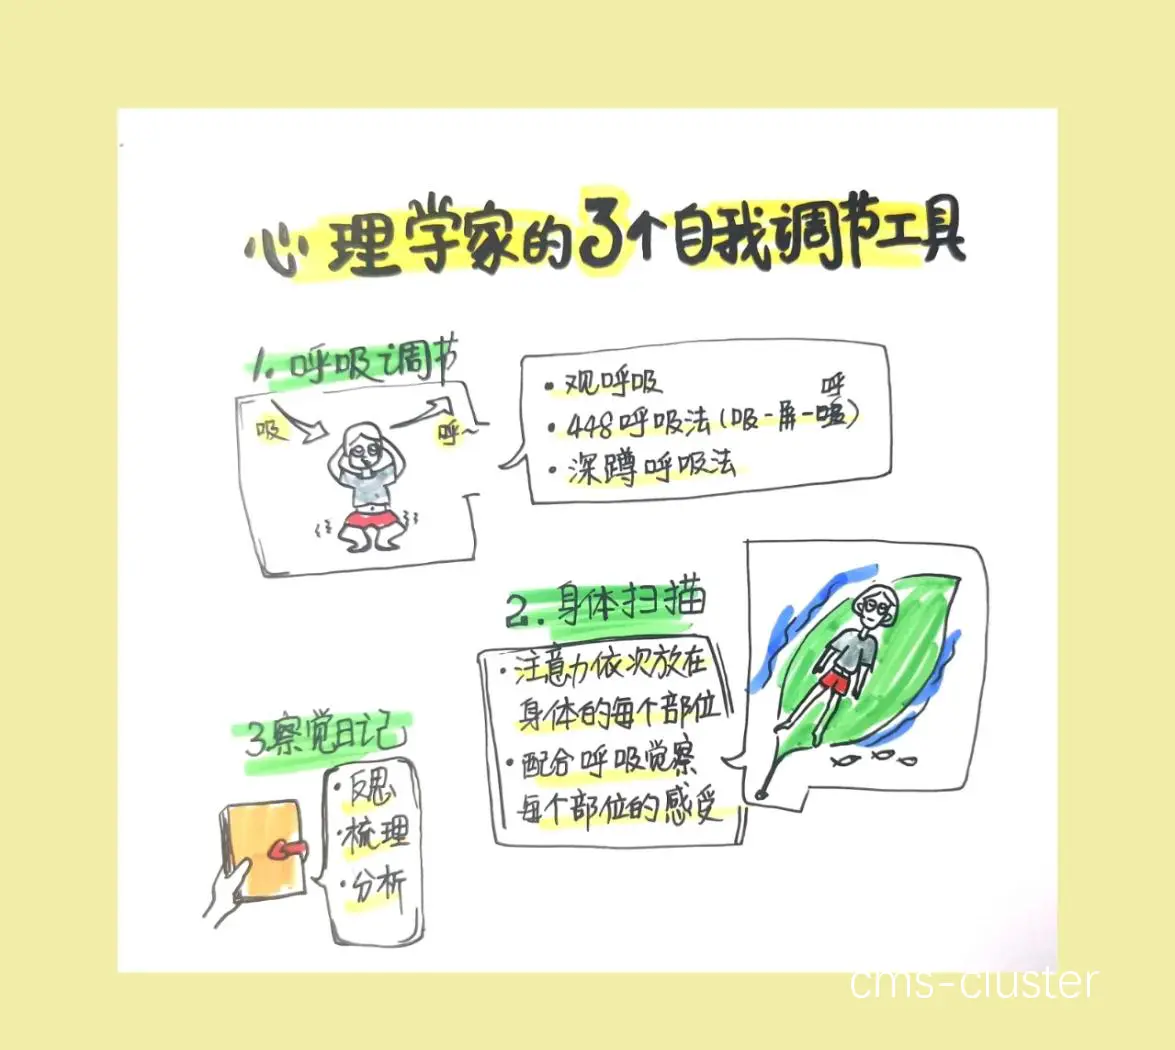 心理学家的3个自我调节工具
1.呼吸调节
吸
呼~
• 观呼吸
呼
• 448呼吸法(吸-屏- )
• 深蹲呼吸法
2.身体扫描
• 注意力依次放在
身体的每个部位
• 配合呼吸觉察
每个部位的感受
3.察觉日记
• 反思
• 梳理
• 分析
cms-cluster